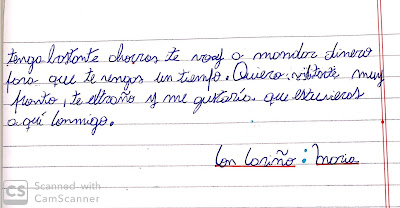 tengo bastante ahorros te voy a mandar dinero
para que te vengas un tiempo. Quiero visitarte muy
pronto, te extraño y me gustaría que estuvieras
aquí conmigo.
Con Cariño: Maria
CS Scanned with
CamScanner